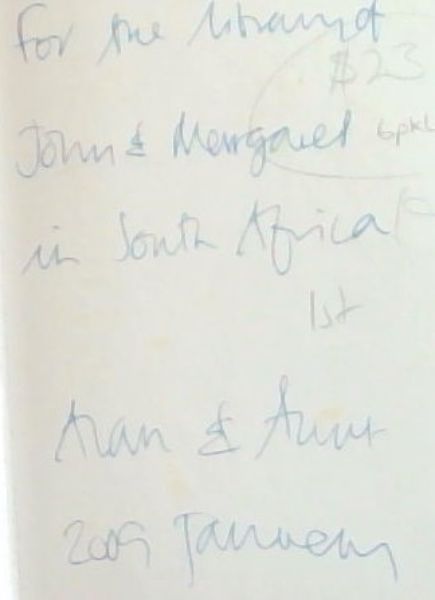 For the library of
$23
John & Margaret
in South Africa
1st
Alan &
2009 January